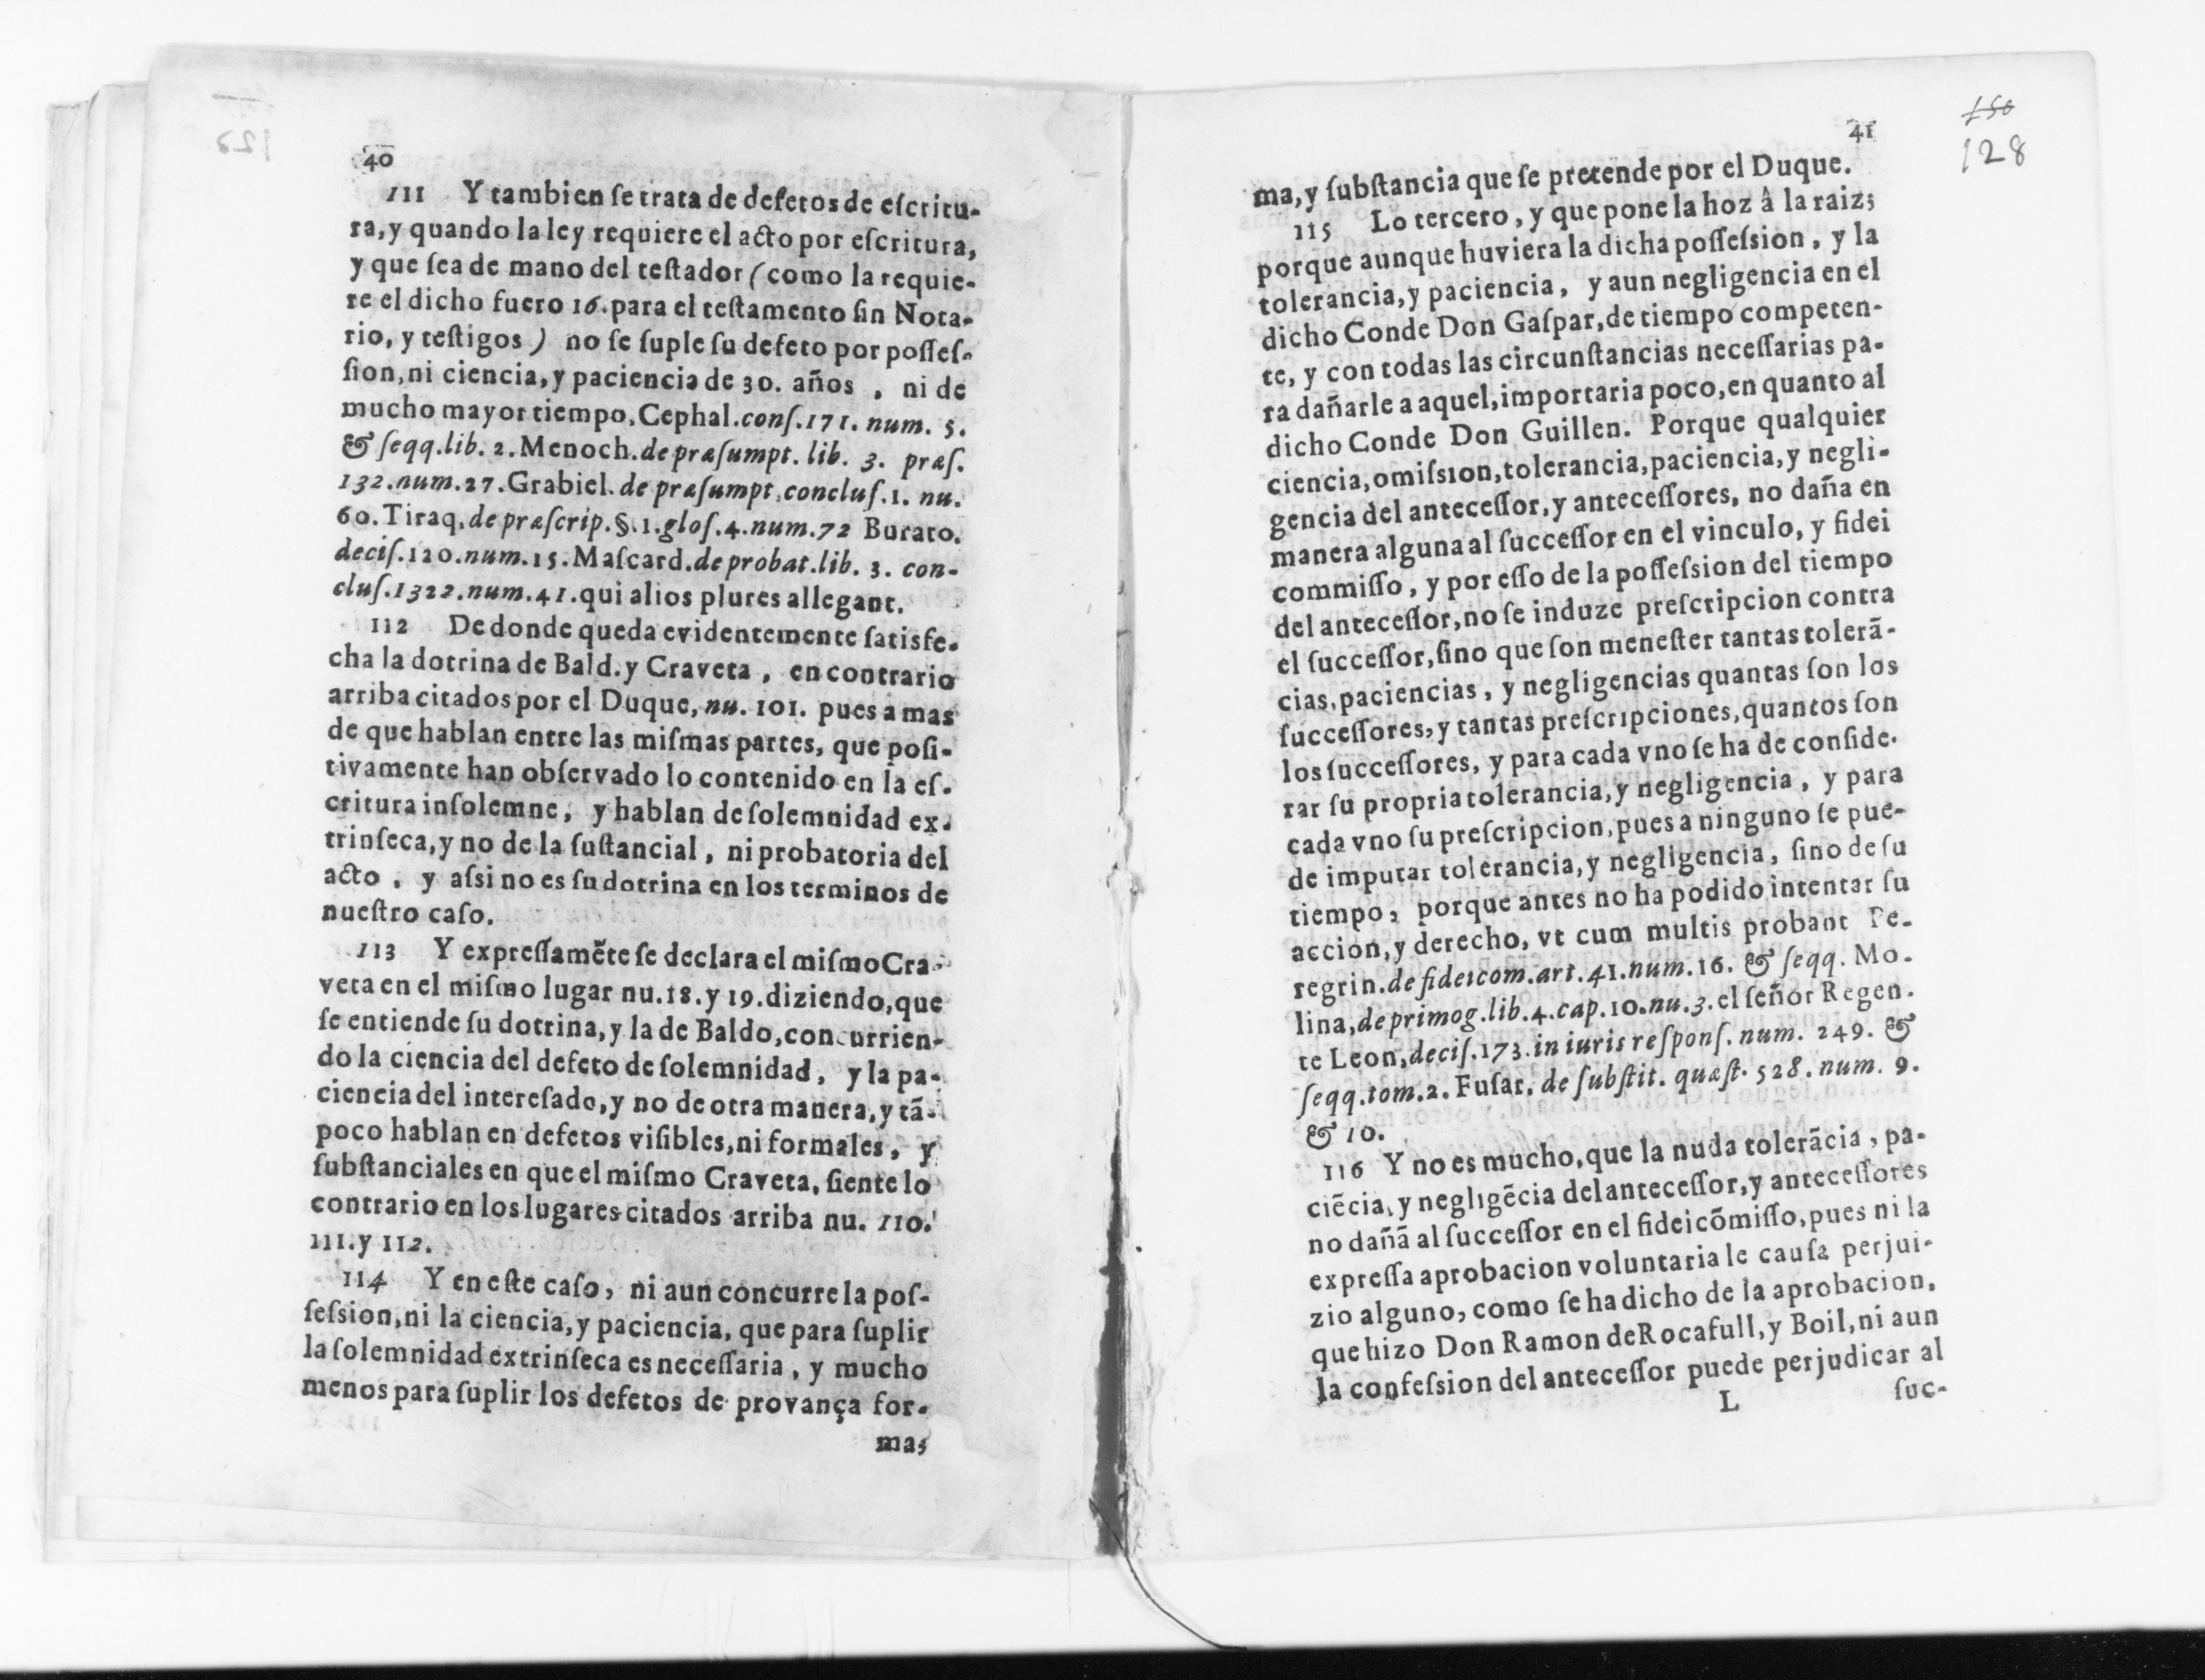 40
111 Y tambien ſe trata de defetos de eſcritu-
ra, y quando la ley requiere el acto por eſcritura,
y que ſea de mano del teſtador (como la requie-
re el dicho fuero 16. para el teſtamento ſin Nota-
rio, y teſtigos) no ſe ſuple ſu defeto por poſſeſ-
ſion, ni ciencia, y paciencia de 30. años , ni de
mucho mayor tiempo. Cephal. conſ. 171. num. 5.
& ſeqq. lib. 2. Menoch. de præſumpt. lib. 3. præſ.
132. num. 27. Grabiel. de præſumpt. concluſ. 1. nu.
60. Tiraq. de præſcrip. §. 1. gloſ. 4. num. 72 Burato.
deciſ. 120. num. 15. Maſcard. de probat. lib. 3. con-
cluſ. 1322. num. 41. qui alios plures allegant.
112 De donde queda evidentemente ſatisfe-
cha la dotrina de Bald. y Craveta , en contrario
arriba citados por el Duque, nu. 101. pues a mas
de que hablan entre las miſmas partes, que poſi-
tivamente han obſervado lo contenido en la eſ-
critura inſolemne, y hablan de ſolemnidad ex-
trinſeca, y no de la ſuſtancial , ni probatoria del
acto , y aſsi no es ſu dotrina en los terminos de
nueſtro caſo.
113 Y expreſſamẽte ſe declara el miſmo Cra-
veta en el miſmo lugar nu. 18. y 19. diziendo, que
ſe entiende ſu dotrina, y la de Baldo, concurrien-
do la ciencia del defeto de ſolemnidad, y la pa-
ciencia del intereſado, y no de otra manera, y tã-
poco hablan en defetos viſibles, ni formales, y
ſubſtanciales en que el miſmo Craveta, ſiente lo
contrario en los lugares citados arriba nu. 110.
111. y 112.
114 Y en eſte caſo, ni aun concurre la poſ-
ſeſsion, ni la ciencia, y paciencia, que para ſuplir
la ſolemnidad extrinſeca es neceſſaria , y mucho
menos para ſuplir los defetos de provança for-
ma;
41
150
128
ma, y ſubſtancia que ſe pretende por el Duque.
115 Lo tercero, y que pone la hoz â la raiz;
porque aunque huviera la dicha poſſeſsion, y la
tolerancia, y paciencia, y aun negligencia en el
dicho Conde Don Gaſpar, de tiempo competen-
te, y con todas las circunſtancias neceſſarias pa-
ra dañarle a aquel, importaria poco, en quanto al
dicho Conde Don Guillen. Porque qualquier
ciencia, omiſsion, tolerancia, paciencia, y negli-
gencia del anteceſſor, y anteceſſores, no daña en
manera alguna al ſucceſſor en el vinculo, y fidei
commiſſo, y por eſſo de la poſſeſsion del tiempo
del anteceſſor, no ſe induze preſcripcion contra
el ſucceſſor, ſino que ſon meneſter tantas tolerã-
cias, paciencias, y negligencias quantas ſon los
ſucceſſores, y tantas preſcripciones, quantos ſon
los ſucceſſores, y para cada vno ſe ha de conſide-
rar ſu propria tolerancia, y negligencia, y para
cada vno ſu preſcripcion, pues a ninguno ſe pue-
de imputar tolerancia, y negligencia, ſino de ſu
tiempo, porque antes no ha podido intentar ſu
accion, y derecho, vt cum multis probant Pe-
regrin. de fideicom. art. 41. num. 16. & ſeqq. Mo-
lina, de primog. lib. 4. cap. 10. nu. 3. el ſeñor Regen-
te Leon, deciſ. 173. in iuris reſponſ. num. 249. &
ſeqq. tom. 2. Fuſar. de ſubſtit. quæſt. 528. num. 9.
& 10.
116 Y no es mucho, que la nuda tolerãcia, pa-
ciẽcia, y negligẽcia del anteceſſor, y anteceſſores
no dañã al ſucceſſor en el fideicõmiſſo, pues ni la
expreſſa aprobacion voluntaria le cauſa perjui-
zio alguno, como ſe ha dicho de la aprobacion,
que hizo Don Ramon de Rocafull, y Boil, ni aun
la confeſsion del anteceſſor puede perjudicar al
L ſuc-